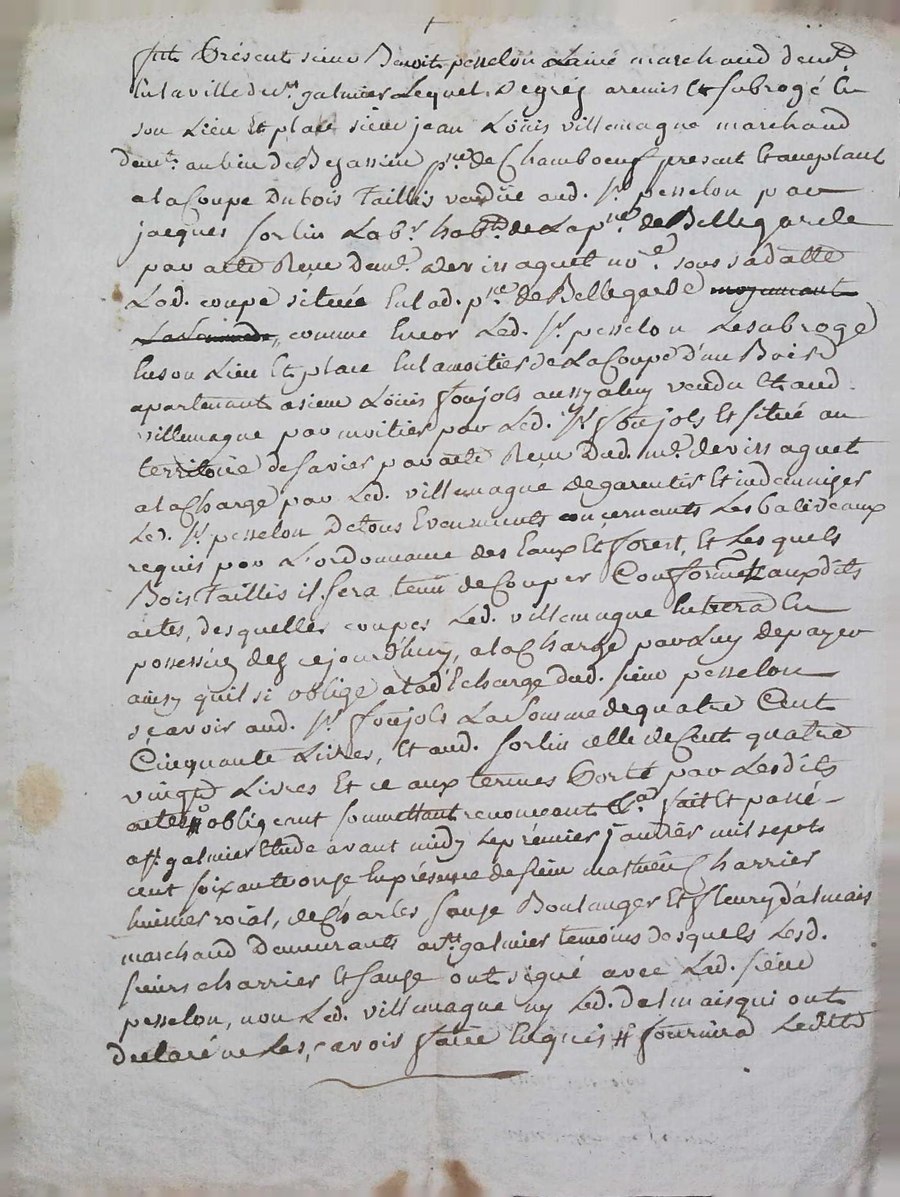 fut Présent sieur Benoit pesselon Lainé marchand demt
En la ville de st galmier Lequel De gréz a remis Et subrogé En
son Lieu Et place sieur jean Loüis villemagne marchand
demt. au lieu de Bejassieu psse de Chamboeuf présent Et aceptant
a la Coupe Du bois Taillis vendüe aud. sr. pesselon par
jacques sorlin Labr. habt. de La psse. de Bellegarde
par acte Reçu Dud. Devissaguet nore. sous sa datte
Lad. coupe située En lad. psse de Bellegarde moyennant
comme Encor Led. sr. pesselon Le subroge
En son Lieu Et place En la moitier de La Coupe d'un Bois
apartenant a sieur Loüis foujols aussy a luy vendu Et aud.
villemagne par moitier par Led. sr. foujols Et situé au
territoire de savier par acte Reçu Dud. me. devissaguet
a la Charge par Led. villemagne De garentir Et indemniser
Led. sr. pesselon De tous Evenements concernants Les baliveaux
requis par L'ordonnance des Eaux Et forest, Et Les quels
Bois Taillis il sera tenu de Couper Conformémt aux dits
actes, des quelles coupes Led. villemagne Entrera En
possession dez ce jourd'huy, a la Charge par Luy de payer
ainsy qu'il si oblige a la d'Echarge dud. sieur pesselon
sçavoir aud. sr. foujols La somme de quatre Cent
Cinquante Livres, Et aud. sorlin celle de Cent quatre
vingt Livres Et ce aux termes Porté par Les dits
actes # obligeant soumettant renonceant &a fait Et passé
a st. galmier Etude avant midy Le prémier janvier mil sept
cent soixante onze En présence de sieur mathieu Charrier
huissier roial, de Charles sauze Boulanger Et fleury dalmais
marchand Demeurants a st galmier temoins des quels Lesd.
sieurs charrier Et sauze ont signé avec Led. sieur
pesselon, non Led. villemagne ny Led. dalmais qui ont
declaré ne Les, çavoir faire Enquis # fournira